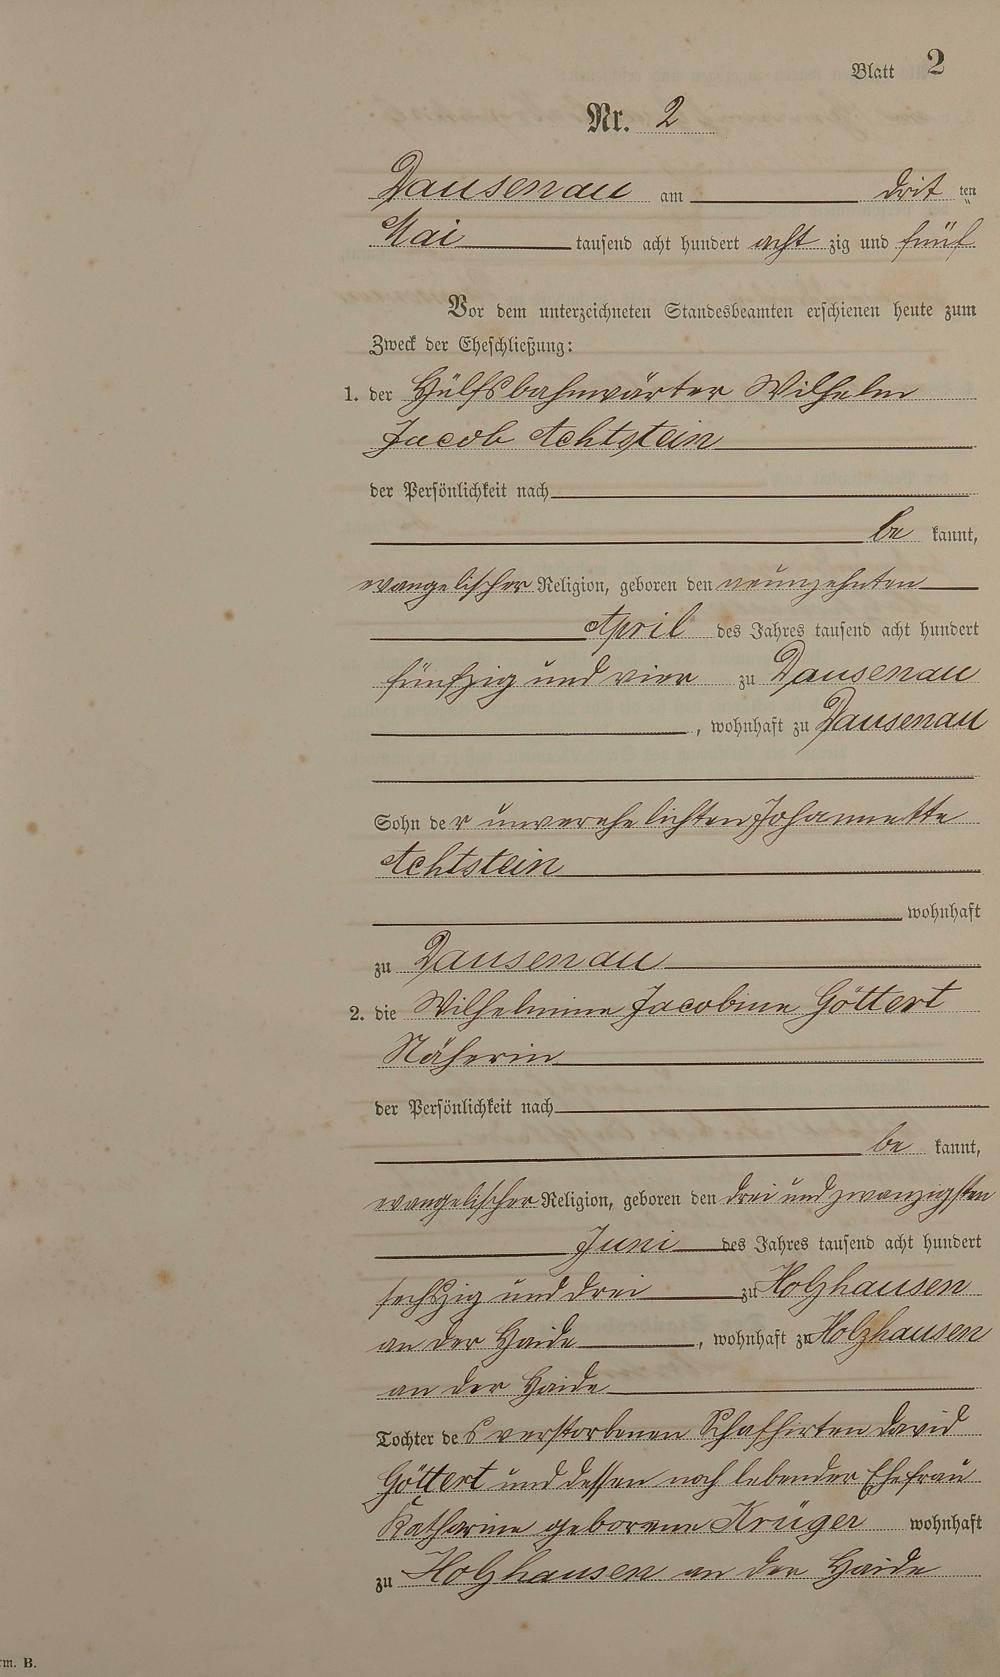 Blatt 2
Nr. 2
Dausenau am drit ten
Mai tausend acht hundert acht zig und fünf
Vor dem unterzeichneten Standesbeamten erschienen heute zum
Zweck der Eheschließung:
1. der Hülfsbahnwärter Wilhelm
Jacob Achtstein
der Persönlichkeit nach
be kannt,
evangelischer Religion, geboren den neunzehnten
April des Jahres tausend acht hundert
fünfzig und vier zu Dausenau
, wohnhaft zu Dausenau
Sohn der unverehelichten Johannette
Achtstein
wohnhaft
zu Dausenau
2. die Wilhelmine Jacobine Göttert
Näherin
der Persönlichkeit nach
be kannt,
evangelischer Religion, geboren den drei und zwanzigsten
Juni des Jahres tausend acht hundert
sechszig und drei zu Holzhausen
an der Haide , wohnhaft zu Holzhausen
an der Haide
Tochter des verstorbenen Schafhirten David
Göttert und dessen noch lebender Ehefrau
Katharine geborene Krüger wohnhaft
zu Holzhausen an der Haide
rm. B.